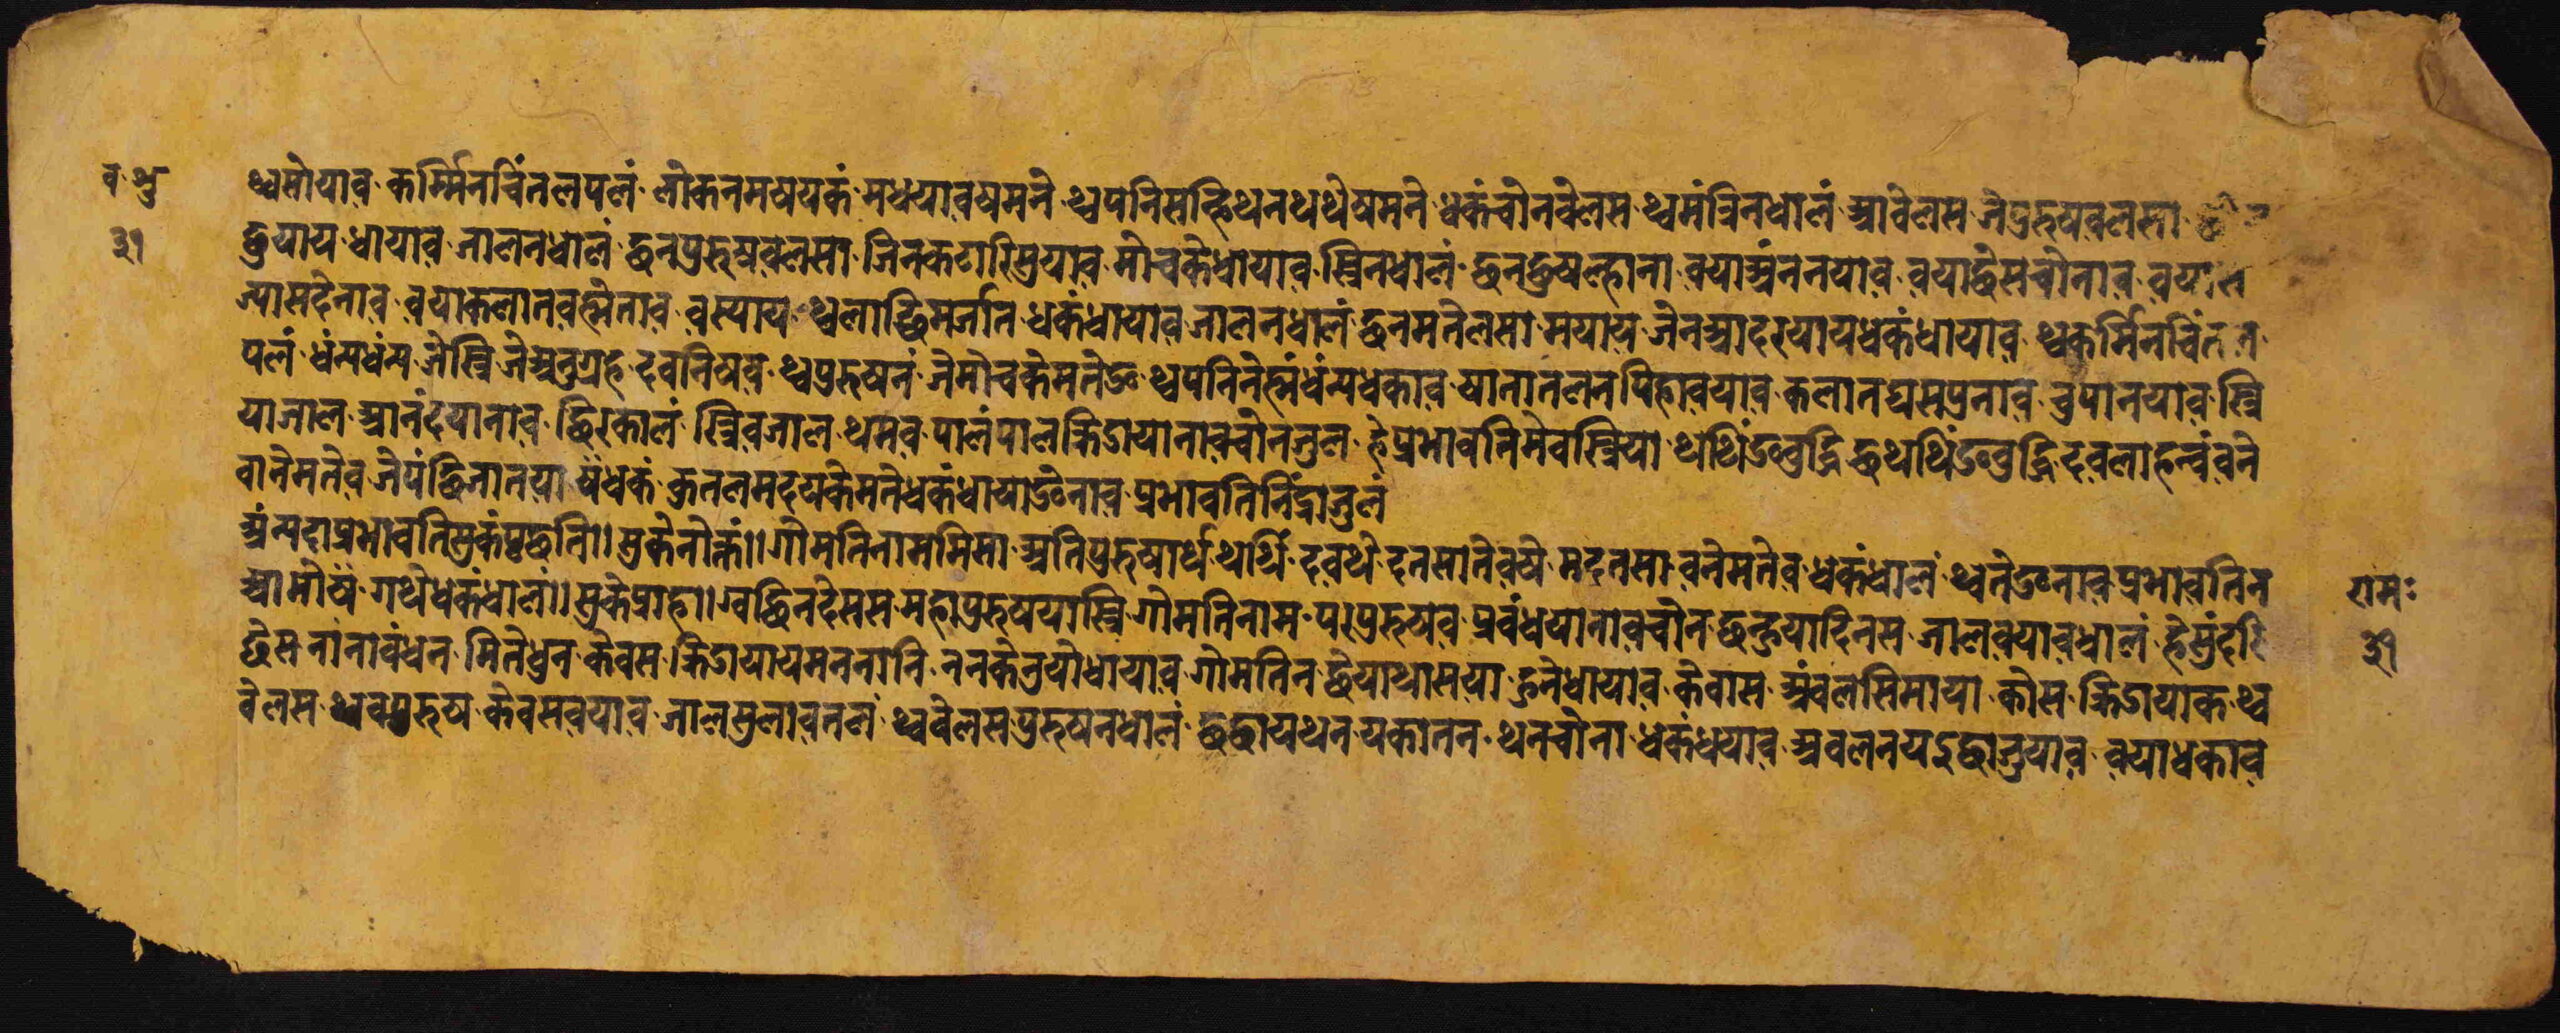 व शु ३१
थ्वसोयाव कर्म्मिनचिंतलपलं लोकनमषयकं मधयावष्यमने थ्वपनिसत्छिथनथथेषमने धकंचोनवेलस थ्वमंत्रिनधालं आवेलस जेपुरुषवलसा
छुयाय धायाव जालनधालं छनपुरुषवलसा जिनकटारिसुयाव मोचकेधायाव स्त्रिनधालं छनछुषल्हाना वयाअंननयाव वयाछेसचोनाव वया
ज्यासदेनाव वयाकलातवल्हेताव वस्याय थ्वलाछिमजीत धकंधायाव जालनधालं छनमतेलसा मयाय जेनआदरयायधकंधायाव थ्वकर्मिनचिंतल
पलं धंन्यधंन्य जेस्त्रि जेअनुग्रह दवनिषव थ्वपुरुषनं जेमोचकेमतेङ थ्वपनिनेह्मंधंन्यधकाव षातानलनपिहावयाव कलातघसपुनाव चुपानयाव स्त्रि
याजाल आनंदयानाव छिरकालं स्त्रिवजाल थमव पालंपालक्रिडायानावचोनजुल हेप्रभावतिमेवस्त्रिया थथिंङबुद्धि छथथिंङबुद्धि दवलाहन्वंवने
वानेमतेव जेपंछिजातया षंधकं कुतलमदयकेमतेधकंधायाङेनाव प्रभावतिनिंद्राजुलं
अंन्यदाप्रभावतिसुकंपृछति॥ सुकेनोक्तं॥ गोमतिनाममिसा अतिपुरुषार्थ थथिं दवथे दतसातेवष्ये मदतसा वनेमतेव धकंधालं थ्वतेङनाव प्रभावतिन
आमोषं गथेधकंधालं॥ सुकेप्राह॥ ग्वछिनदेसस महापुरुषयास्त्रि गोमतिनाम परपुरुषव प्रवंधयानावचोन छन्हुयादिनस जालवयावधालं हेसुंदरि
छेस नानावंधन मितेधुन केवस क्रिडायायमननानि ननकेनुयोधायाव गोमतिन छेयाथासया हुनेधायाव केवास अंवलसिमाया कोस क्रिडायाक थ्व
वेलस थ्ववपुरुष केवसवयाव जालसुलावनलं थ्ववेलसपुरुषनधालं छछायथन यकातन थनचोना धकंधयाव अवलनयइछाजुयाव वयाधकाव
राम ः
३१